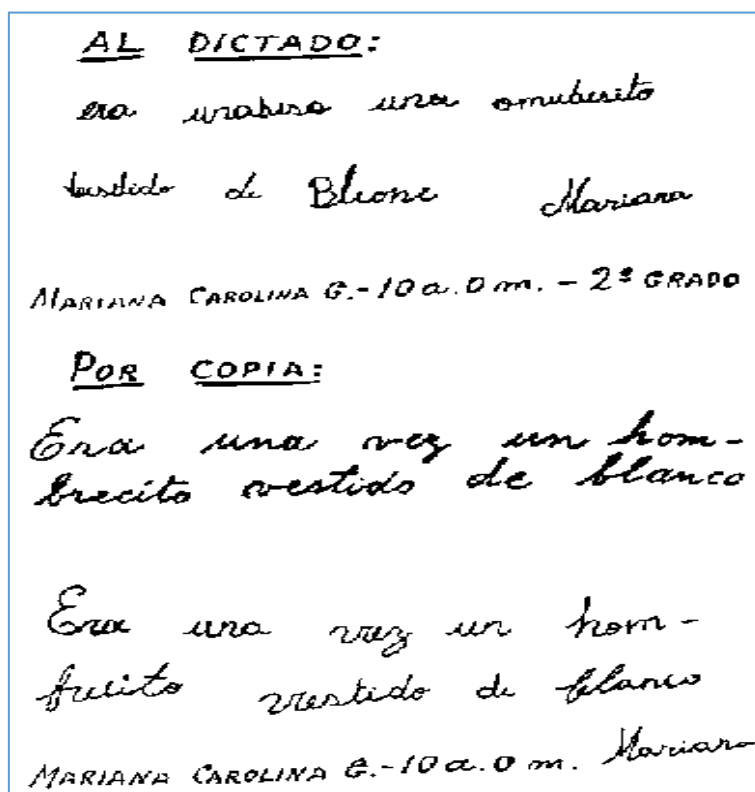 AL DICTADO:
era unabisa una omubesito
bestido de Bleone Mariana
MARIANA CAROLINA G.-10 a. 0 m. - 2º GRADO
POR COPIA:
Era una vez un hom-
brecito vestido de blanco
Era una vez un hom-
brecito vestido de blanco
MARIANA CAROLINA G.-10 a. 0 m. Mariana